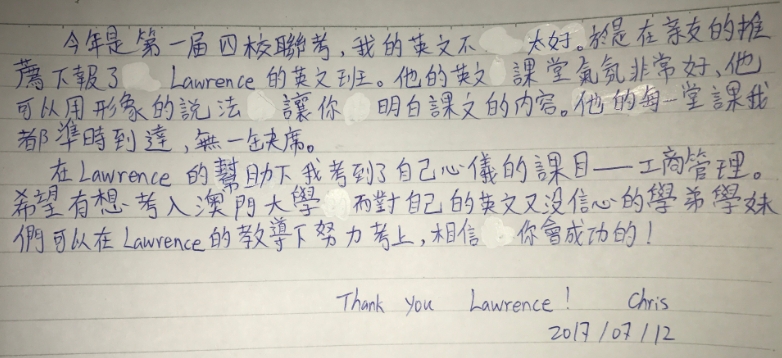 今年是第一届四校聯考，我的英文不太好。於是在亲友的推
薦下報了 Lawrence 的英文班。他的英文課堂氣氛非常好，他
可以用形象的說法讓你明白課文的内容。他的每一堂課我
都準時到達，無一缺席。
在 Lawrence 的幫助下我考到了自己心儀的課目——工商管理。
希望有想考入澳門大學而對自己的英文又没信心的學弟學妹
們可以在 Lawrence 的教導下努力考上，相信你會成功的！
Thank you Lawrence! Chris
2017/07/12